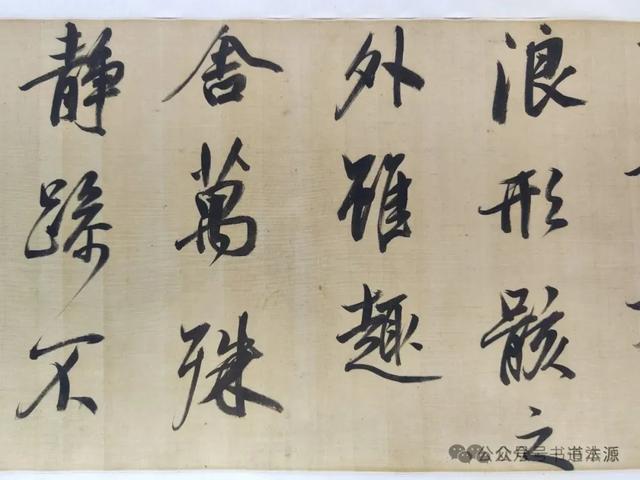 浪形骸之
外雖趣
舍萬殊
靜躁不
公众号书道本源